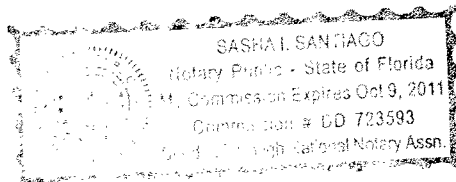 SASHA I. SANTIAGO
Notary Public - State of Florida
My Commission Expires Oct 9, 2011
Commission # DD 723593
Bonded Through National Notary Assn.